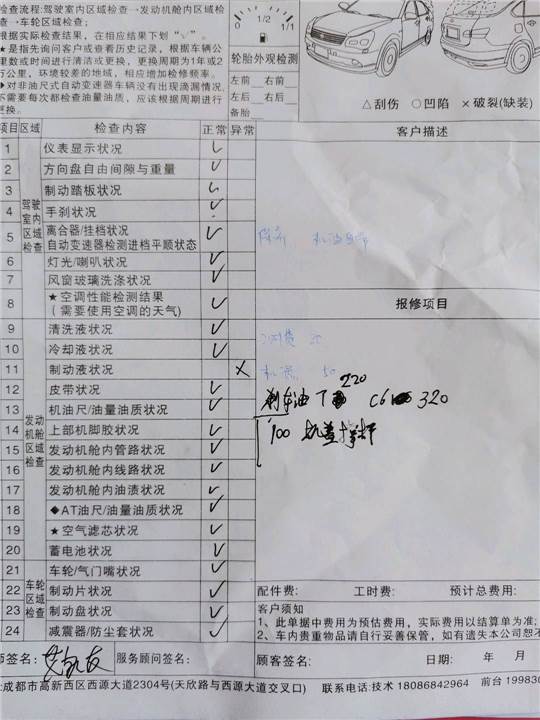 检查流程:驾驶室内区域检查→发动机舱内区域检
查→车轮区域检查;
根据实际检查结果，在相应结果下划“√”。
★是指先询问客户或查看历史记录，根据车辆公
里数或时间进行清洁或更换，更换周期为1年或2
万公里，环境较差的地域，相应增加检修频率。
◆对非油尺式自动变速器车辆没有出现滴漏情况，
不需要每次都检查油量油质，应该根据周期进行
更换。
0 1/2 1/1
轮胎外观检测
左前 右前
左后 右后
备胎
△刮伤 ○凹陷 ×破裂(缺装)
项目 区域 检查内容 正常 异常
客户描述
驾驶室内区域检查
1 仪表显示状况 √
2 方向盘自由间隙与重量 √
3 制动踏板状况 √
4 手刹状况 √
5 离合器/挂档状况
自动变速器检测进档平顺状态 √
6 灯光/喇叭状况 √
7 风窗玻璃洗涤状况 √
8 ★空调性能检测结果
(需要使用空调的天气) √
保养 机油自带
报修项目
发动机舱区域检查
9 清洗液状况 √
10 冷却液状况 √
11 制动液状况 ×
12 皮带状况 √
13 机油尺/油量油质状况 √
14 上部机脚胶状况 √
15 发动机舱内管路状况 √
16 发动机舱内线路状况 √
17 发动机舱内油渍状况 √
18 ◆AT油尺/油量油质状况 √
19 ★空气滤芯状况 √
20 蓄电池状况 √
50
220
刹车油 320
100 机盖撑杆
车轮区域检查
21 车轮/气门嘴状况 √
22 制动片状况 √
23 制动盘状况 √
24 减震器/防尘套状况 √
配件费: 工时费: 预计总费用:
客户须知
1、此单据中费用为预估费用，实际费用以结算单为准;
2、车内贵重物品请自行妥善保管，如有遗失本公司恕不
师签名: 服务顾问签名: 顾客签名: 日期: 年 月
:成都市高新西区西源大道2304号(天欣路与西源大道交叉口) 联系电话:技术 18086842964 前台 199830